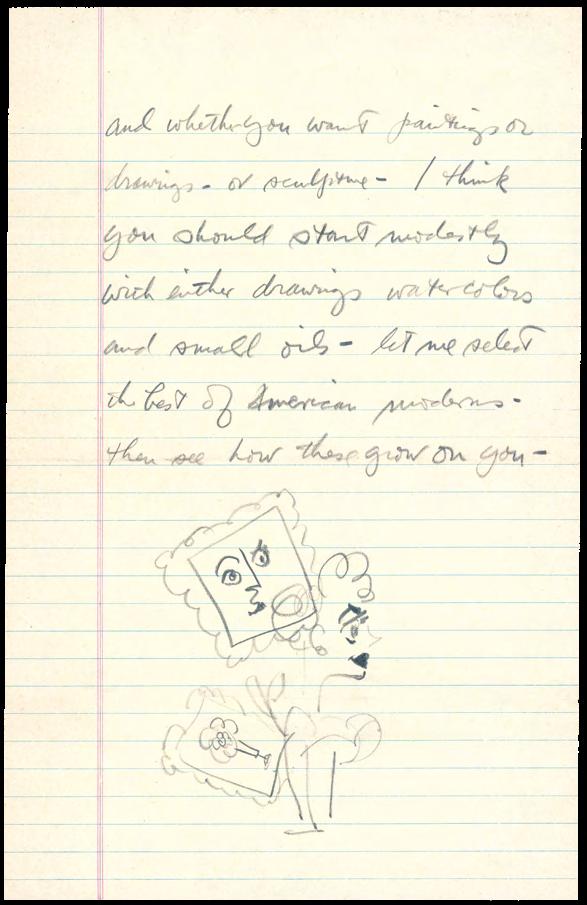 and whether you want paintings or
drawings - or sculpture - I think
you should start modestly
with either drawings watercolors
and small oils - let me select
the best of American moderns -
then see how these grow on you -